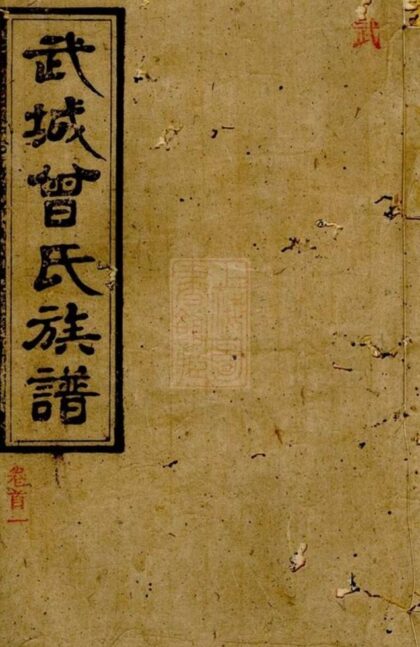 武
武城曾氏族譜
卷首一